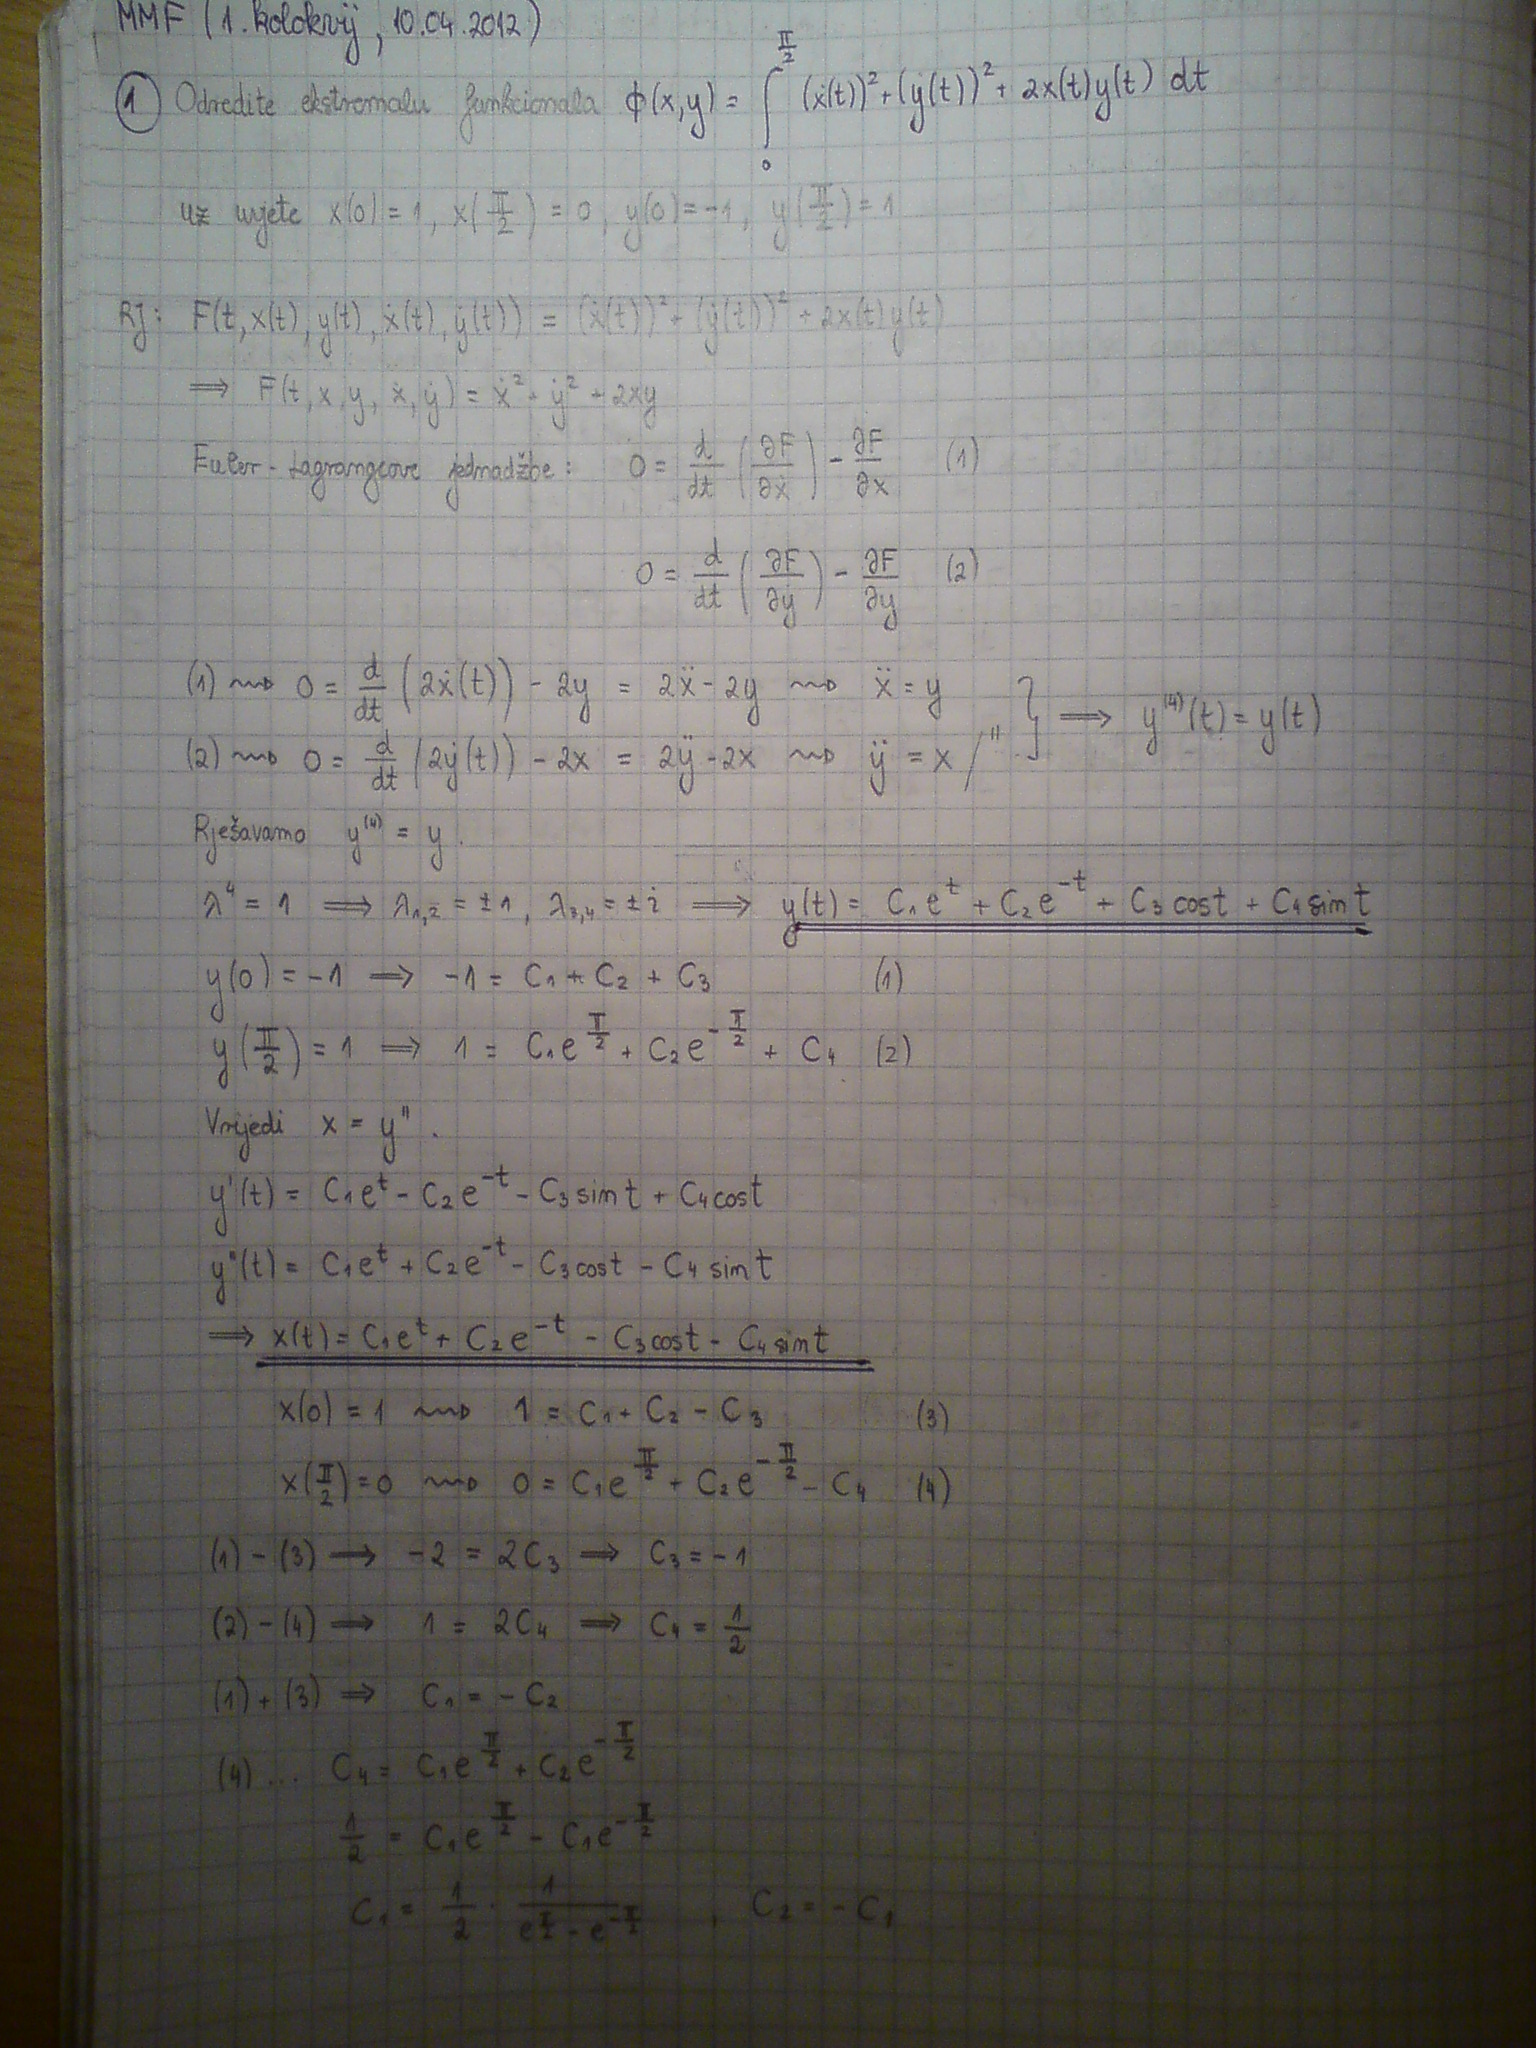 MMF (1. kolokvij, 10.04.2012)
① Odredite ekstremalu funkcionala ϕ(x,y) = ∫₀^{π/2} (ẋ(t))² + (ẏ(t))² + 2x(t)y(t) dt
uz uvjete x(0) = 1, x(π/2) = 0, y(0) = -1, y(π/2) = 1
Rj: F(t, x(t), y(t), ẋ(t), ẏ(t)) = (ẋ(t))² + (ẏ(t))² + 2x(t)y(t)
⟹ F(t, x, y, ẋ, ẏ) = ẋ² + ẏ² + 2xy
Euler-Lagrangeove jednadžbe: 0 = d/dt (∂F/∂ẋ) - ∂F/∂x (1)
0 = d/dt (∂F/∂ẏ) - ∂F/∂y (2)
(1) ⇝ 0 = d/dt (2ẋ(t)) - 2y = 2ẍ - 2y ⇝ ẍ = y
(2) ⇝ 0 = d/dt (2ẏ(t)) - 2x = 2ÿ - 2x ⇝ ÿ = x /'' } ⟹ y⁽⁴⁾(t) = y(t)
Rješavamo y⁽⁴⁾ = y.
λ⁴ = 1 ⟹ λ₁,₂ = ±1, λ₃,₄ = ±i ⟹ y(t) = C₁e^t + C₂e^{-t} + C₃cost + C₄sint
y(0) = -1 ⟹ -1 = C₁ + C₂ + C₃ (1)
y(π/2) = 1 ⟹ 1 = C₁e^{π/2} + C₂e^{-π/2} + C₄ (2)
Vrijedi x = y''.
y'(t) = C₁e^t - C₂e^{-t} - C₃sint + C₄cost
y''(t) = C₁e^t + C₂e^{-t} - C₃cost - C₄sint
⟹ x(t) = C₁e^t + C₂e^{-t} - C₃cost - C₄sint
x(0) = 1 ⇝ 1 = C₁ + C₂ - C₃ (3)
x(π/2) = 0 ⇝ 0 = C₁e^{π/2} + C₂e^{-π/2} - C₄ (4)
(1) - (3) ⟶ -2 = 2C₃ ⟹ C₃ = -1
(2) - (4) ⟹ 1 = 2C₄ ⟹ C₄ = 1/2
(1) + (3) ⟹ C₁ = -C₂
(4) ... C₄ = C₁e^{π/2} + C₂e^{-π/2}
1/2 = C₁e^{π/2} - C₁e^{-π/2}
C₁ = 1/2 · 1/(e^{π/2} - e^{-π/2}), C₂ = -C₁